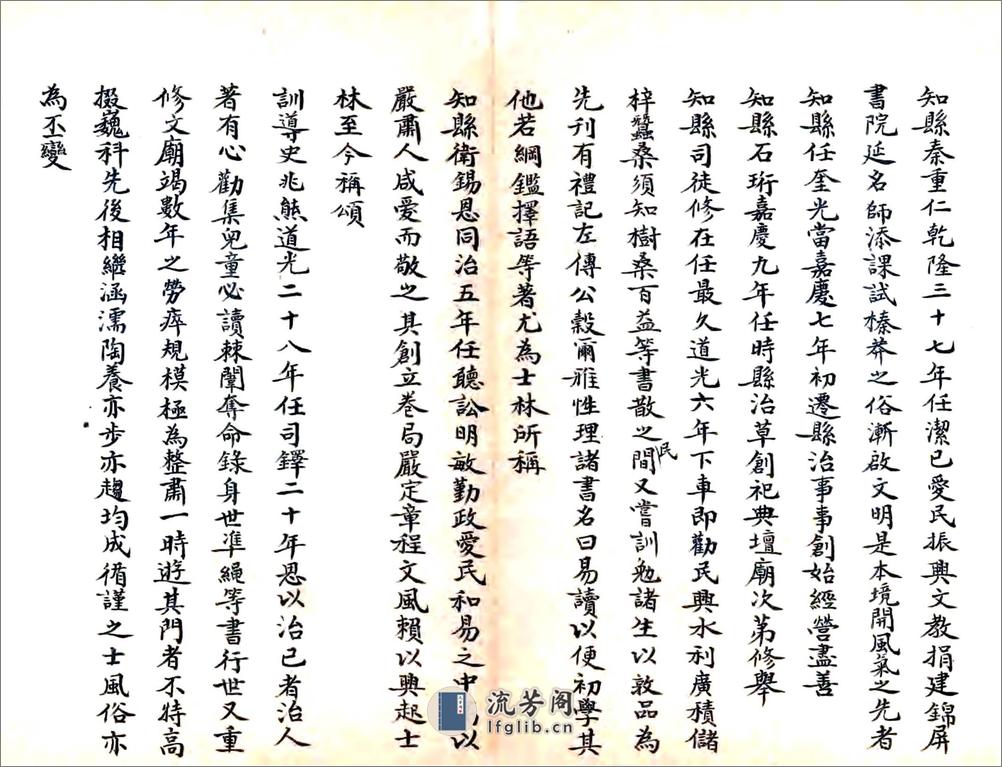 知縣秦重仁乾隆三十七年任潔已愛民振興文教捐建錦屏
書院延名師添課試榛莽之俗漸啟文明是本境開風氣之先者
知縣任奎光當嘉慶七年初遷縣治事事創始經營盡善
知縣石珩嘉慶九年任時縣治草創祀典壇廟次第修舉
知縣司徒修在任最久道光六年下車即勸民興水利廣積儲
梓蠶桑須知樹桑百益等書散之民間又嘗訓勉諸生以敦品為
先刊有禮記左傳公穀爾雅性理諸書名曰易讀以便初學其
他若綱鑑擇語等著尤為士林所稱
知縣衛錫恩同治五年任聽訟明敏勤政愛民和易之中以
嚴肅人咸愛而敬之其創立卷局嚴定章程文風賴以興起士
林至今稱頌
訓導史兆熊道光二十八年任司鐸二十年恩以治已者治人
著有心勸集兒童必讀棘闈奪命錄身世準繩等書行世又重
修文廟竭數年之勞瘁規模極為整肅一時遊其門者不特高
掇巍科先後相繼涵濡陶養亦步亦趨均成循謹之士風俗亦
為丕變
流芳阁
lfglib.cn